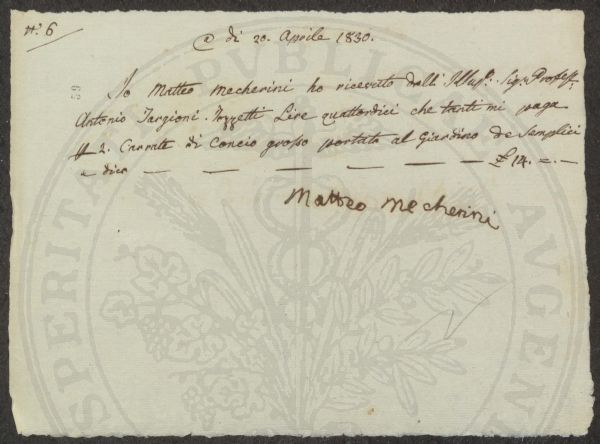 N.° 6
@ dì 20. Aprile 1830.
59
Io Matteo Mecherini ho ricevuto dall: Illus.° Sig.r Profess.r
Antonio Targioni Tozzetti Lire quattordici che tanti mi paga
p 2. Carrate di Concio grosso portato al Giardino de Semplici
a dico — — — — — — £ 14. =. —
Matteo Mecherini
SPERITA PUBLICAE AVGEN